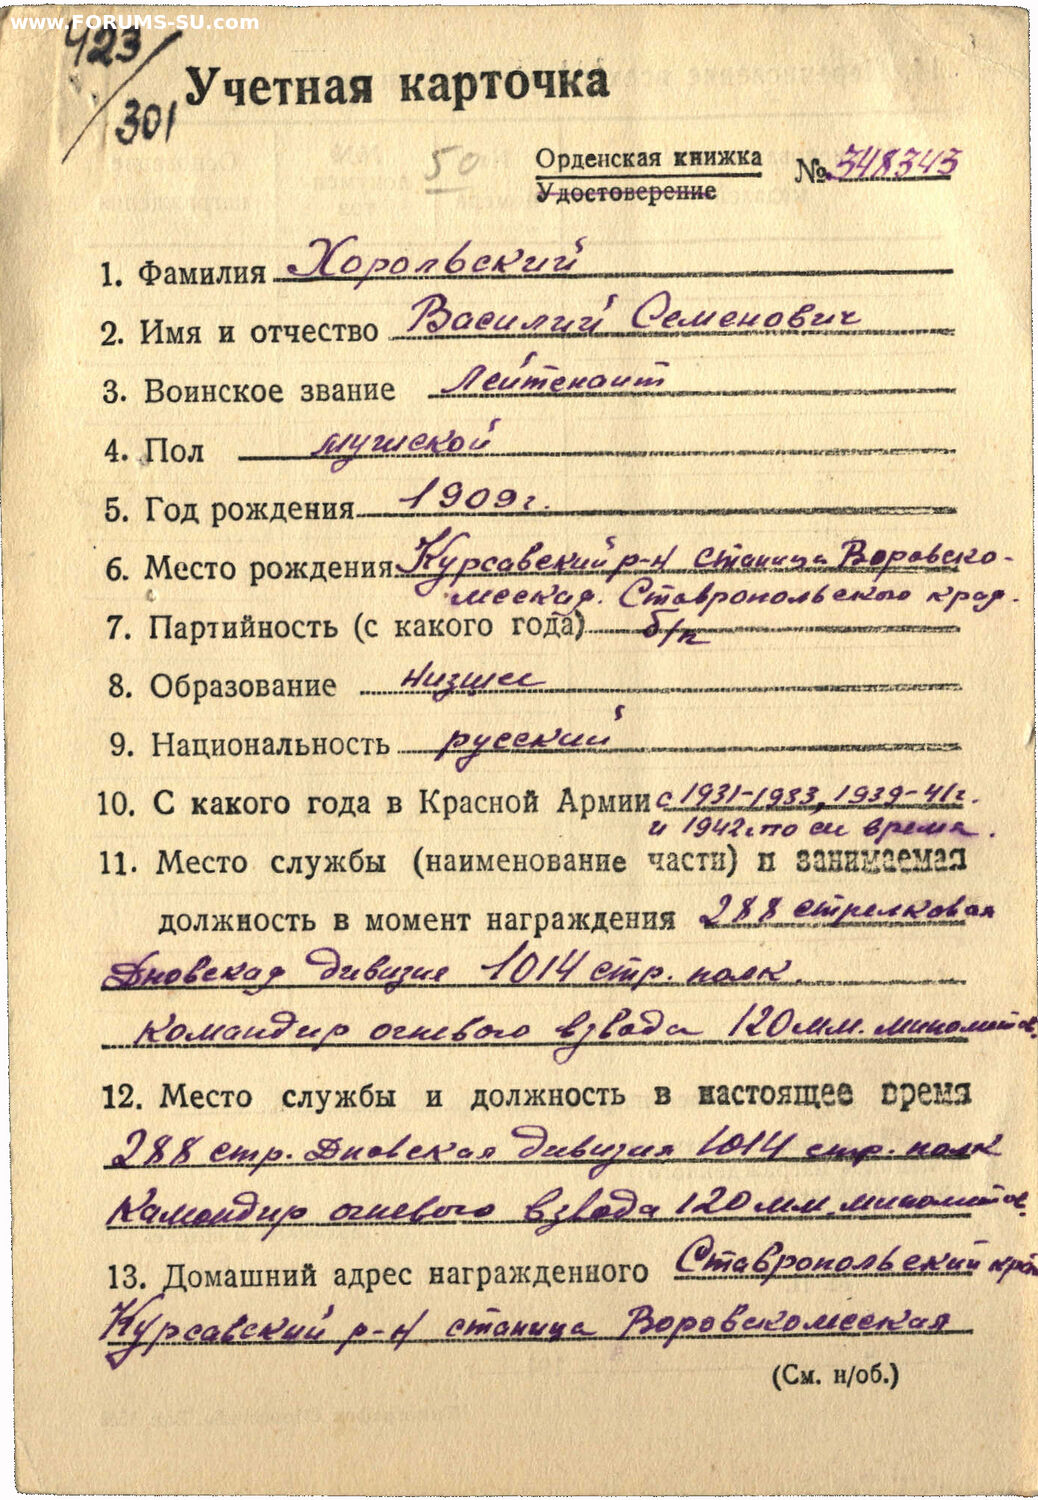 www.FORUMS-SU.com
423/301
Учетная карточка
50
Орденская книжка № 348343
Удостоверение
1. Фамилия Хорольский
2. Имя и отчество Василий Семенович
3. Воинское звание Лейтенант
4. Пол мужской
5. Год рождения 1909 г.
6. Место рождения Курсавский р-н станица Воровско-
лесская. Ставропольского края.
7. Партийность (с какого года) б/п
8. Образование низшее
9. Национальность русский
10. С какого года в Красной Армии с 1931-1933, 1939-41г.
и 1942г. по си время.
11. Место службы (наименование части) и занимаемая
должность в момент награждения 288 стрелковая
Дновская дивизия 1014 стр. полк
командир огневого взвода 120 мм. минометов.
12. Место службы и должность в настоящее время
288 стр. Дновская дивизия 1014 стр. полк
Командир огневого взвода 120 мм. минометов.
13. Домашний адрес награжденного Ставропольский край
Курсавский р-н станица Воровсколесская
(См. н/об.)